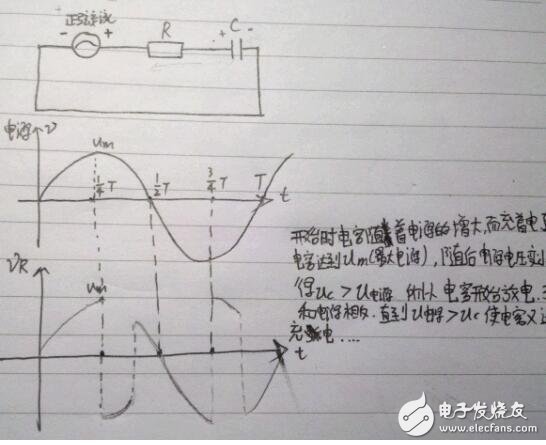 正弦
- + R + C -
电源 V
Um
1/4 T 1/2 T 3/4 T T t
开始时电容随着电源的增大,而充着电
电容达到Um(最大电源),随后电源电压变
得Uc > U电源 所以电容开始放电.
和电源相反.直到U电源 > Uc 使电容又
充电....
VR
Um
t
电子发烧友
www.elecfans.com